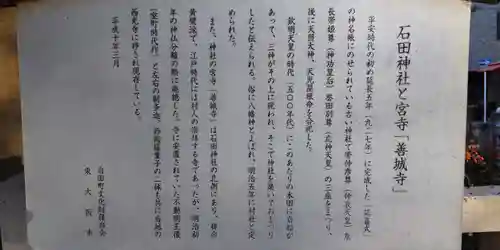 石田神社と宮寺「善城寺」
平安時代の初め延長五年（九二七年）に完成した「延喜式」
の神名帳にのせられている古い神社で帯仲彦尊（仲哀天皇）気
長帯姫尊（神功皇后）誉田別尊（応神天皇）の三座をまつり、
後に天照大神、天児屋根命を合祀した。
欽明天皇の時代（五〇〇年代）にこのあたりの木田に
あって、三神がその上に現われ、そこで神社を築いておまつり
したと伝えられる。俗に八幡神とよばれ、明治五年に村社と定
められた。
また、神社の宮寺「善城寺」は石田神社の北側にあり、
黄檗派で、江戸時代には村人の崇拝する寺であったが、明治初
年の神仏分離の際に廃絶した。寺に安置されていた不動明王像
（室町時代作）と左右の制多迦、矜羯羅童子の二体も共に当地の
光寺に移され現存している。
平成十年三月
岩田町文化財保存会
東大阪市